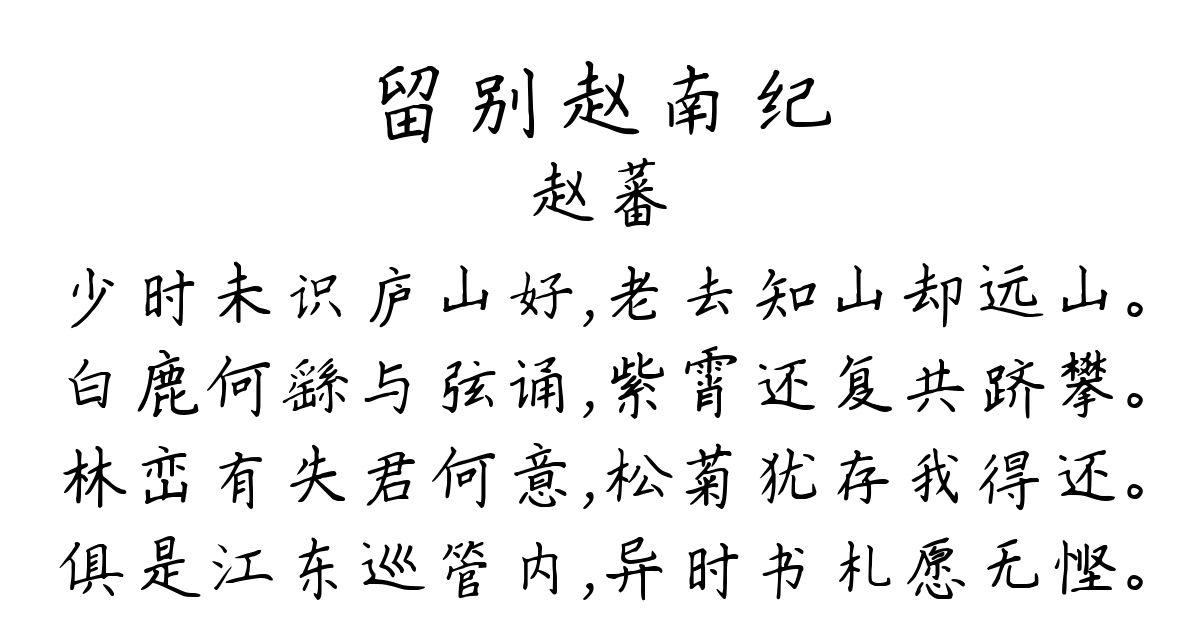 留别赵南纪
赵蕃
少时未识庐山好,老去知山却远山。
白鹿何繇与弦诵,紫霄还复共跻攀。
林峦有失君何意,松菊犹存我得还。
俱是江东巡管内,异时书札愿无悭。